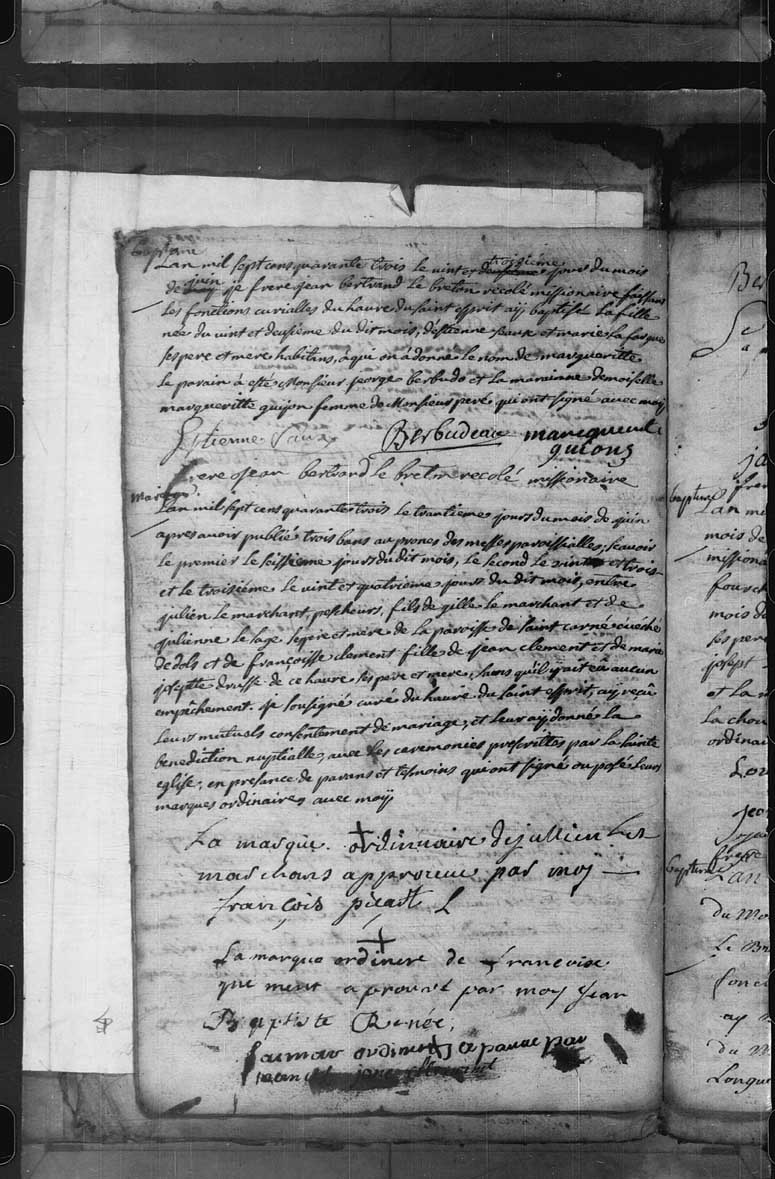 Baptême
Lan mil sept cens quarante trois le vint et troisiéme jours du mois
de juin je frere jean bertrand le breton recolé missionaire faissant
les fonctions curialles du havre du saint esprit aÿ baptisé la fille
née du vint et deusiéme du dit mois, destienne saux et marie la fargue
ses pere et mere habitans, a qui on á donné le nom de margueritte
le parain á esté Monsieur george berbudo et la maraine demoiselle
margueritte guijon femme de Monsieur peré qui ont signé avec moÿ
Estienne Saux Berbudeau
guions
frere jean bertrand le breton recolé missionaire
mariage
Lan mil sept cens quarante trois le trantiéme jours du mois de juin
apres avoir publié trois bans au prones des messes paroissialles, scavoir
le premier le seissiéme jours du dit mois, le second le vint et trois
et le troisiéme le vint et quatriéme jours du dit mois, entre
julien le marchant, pescheurs, fils de gille le marchant et de
julienne le sage ses pere et mere de la paroisse de saint carné eveché
de dols et de françoisse clement fille de jean clement et de marie
josephte de ce havre ses pere et mere, sans qu'il ÿ ait eü aucun
empêchement. je sousigné curé du havre du saint esprit, aÿ reçû
leurs mutuels consentement de mariage, et leur aÿ donné la
benediction nuptialle, avec les ceremonies prescrittes par la sainte
eglise, en presance de parans et tesmoins qui ont signé ou posé leurs
marques ordinaires avec moÿ
La marque + ordinuaire de jullien Les
marchans approuvue par moÿ
françois picart
La marque + ordinere de françoise
que ment aprouvé par moy jean
Baptiste René,
la mar ordinere + a pauue par
Ber
Le
a
ja
baptême frere
Lan mi
mois de
missiona
fourch
mois du
ses pere
joseph
et la m
La chou
ordinai
Lou
jean
frere
baptême
Lan
du Mo
Le Br
fonc
ay
du M
Longue